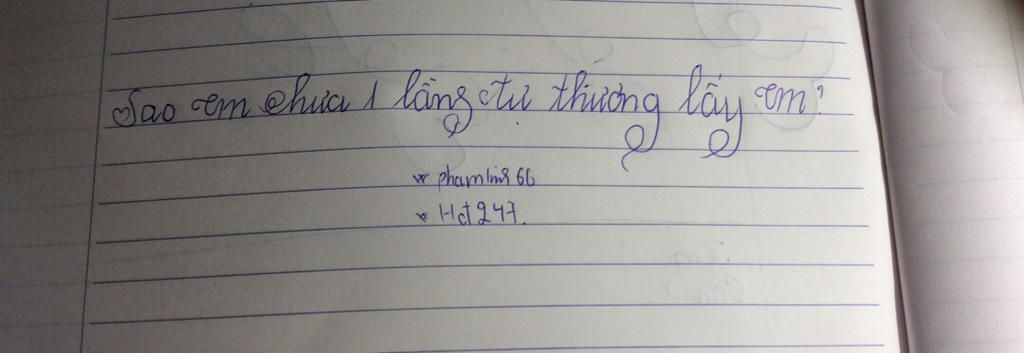 Sao em chưa 1 lần tự thương lấy em?
* phamlinh 66
* Hct 247.